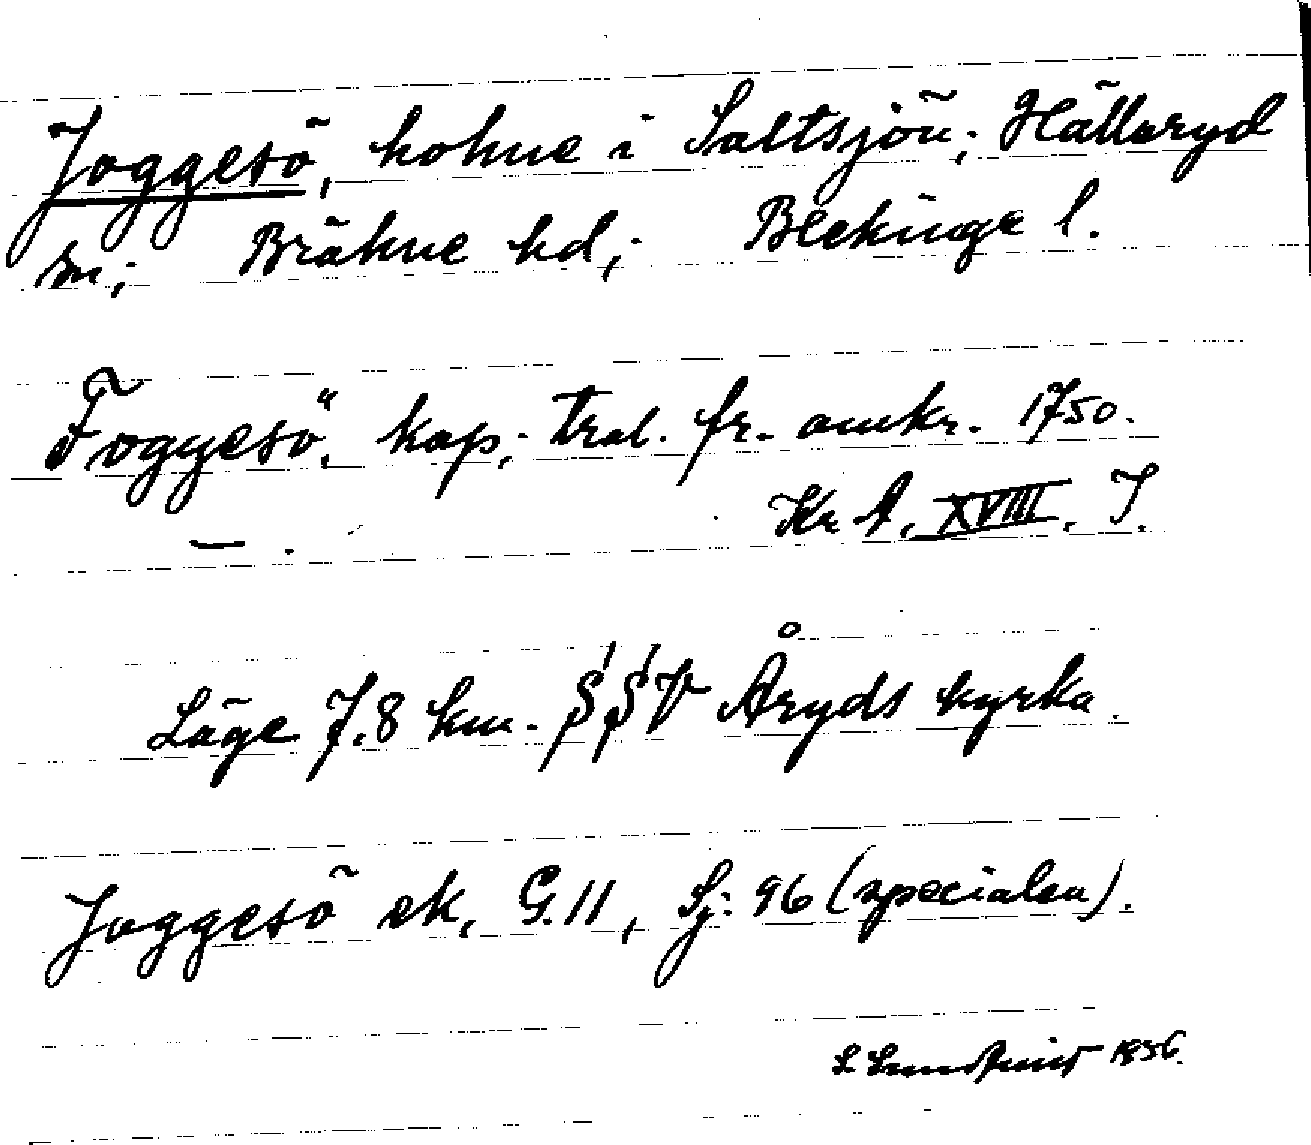 Joggesö, holme i Saltsjön; Hällaryd
sn; Bräkne hd; Blekinge l.
Foggesö. kap; trol. fr. omkr. 1750.
Kr A. XVIII. J.
Läge 7.8 km. SSV Åryds kyrka.
Joggesö ek. G.11, Sj: 96 (specialen).